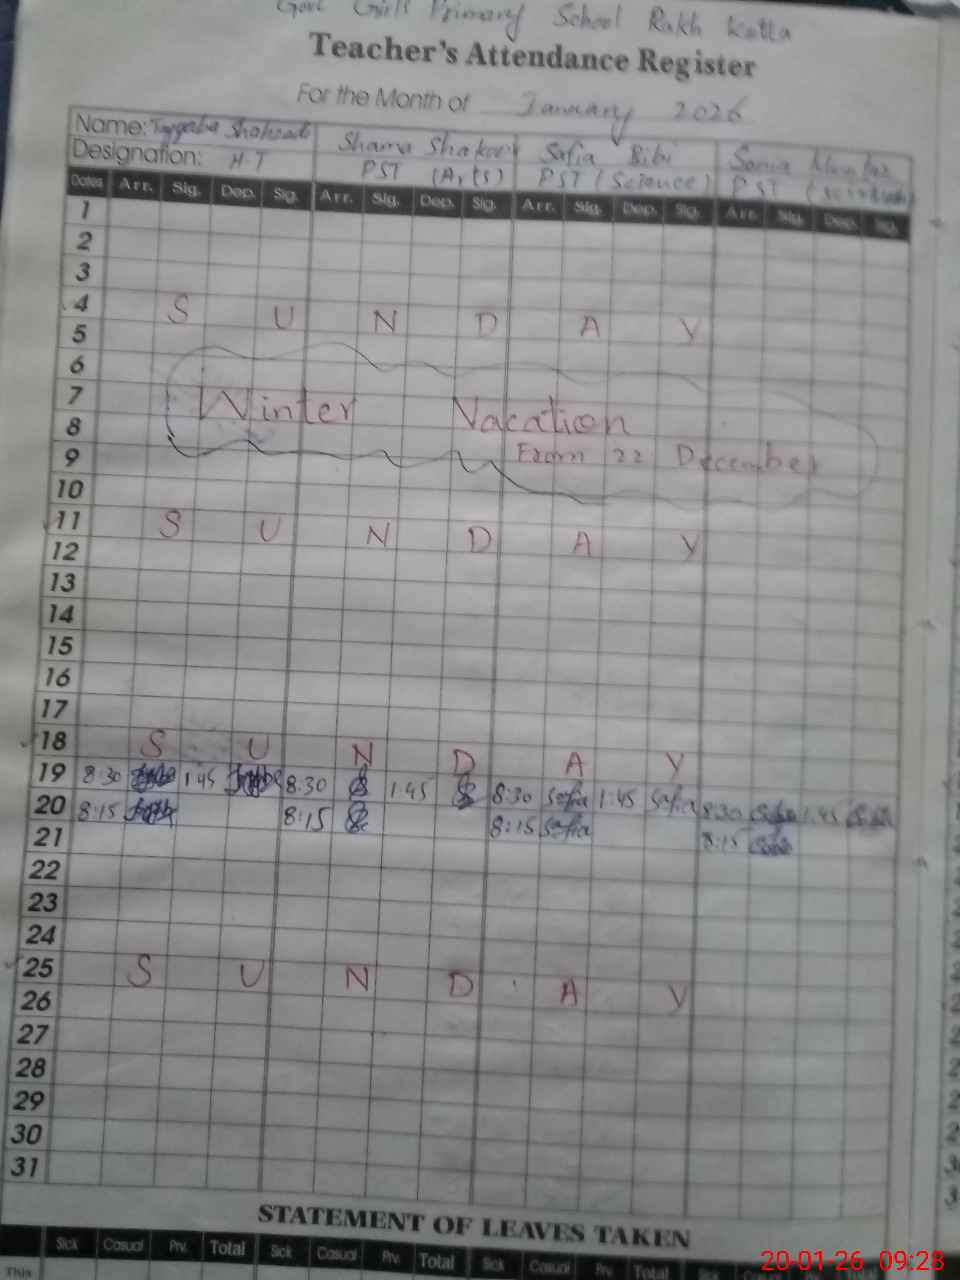 Govt Girls Primary School Rakh Katla
Teacher's Attendance Register
For the Month of January 2026
Name: Shahzadi Shama Shakoor Safia Bibi Sonia Mumtaz
Designation: H.T PST (Arts) PST (Science) PST
Dates Arr. Sig. Dep. Sig. Arr. Sig. Dep. Sig. Arr. Sig. Dep. Sig. Arr. Sig. Dep. Sig.
1
2
3
4 S U N D A Y
5
6
7 Winter Vacation
8
9 From 22 December
10
11 S U N D A Y
12
13
14
15
16
17
18 S U N D A Y
19 8:30 1:45 8:30 1:45 8:30 Safia 1:45 Safia 8:30 1:45
20 8:15 8:15 8:15 Safia 8:15
21
22
23
24
25 S U N D A Y
26
27
28
29
30
31
STATEMENT OF LEAVES TAKEN
Sick Casual Prv. Total Sick Casual Prv. Total Sick Casual Prv. Total Sick Casual
This
20-01-26 09:28